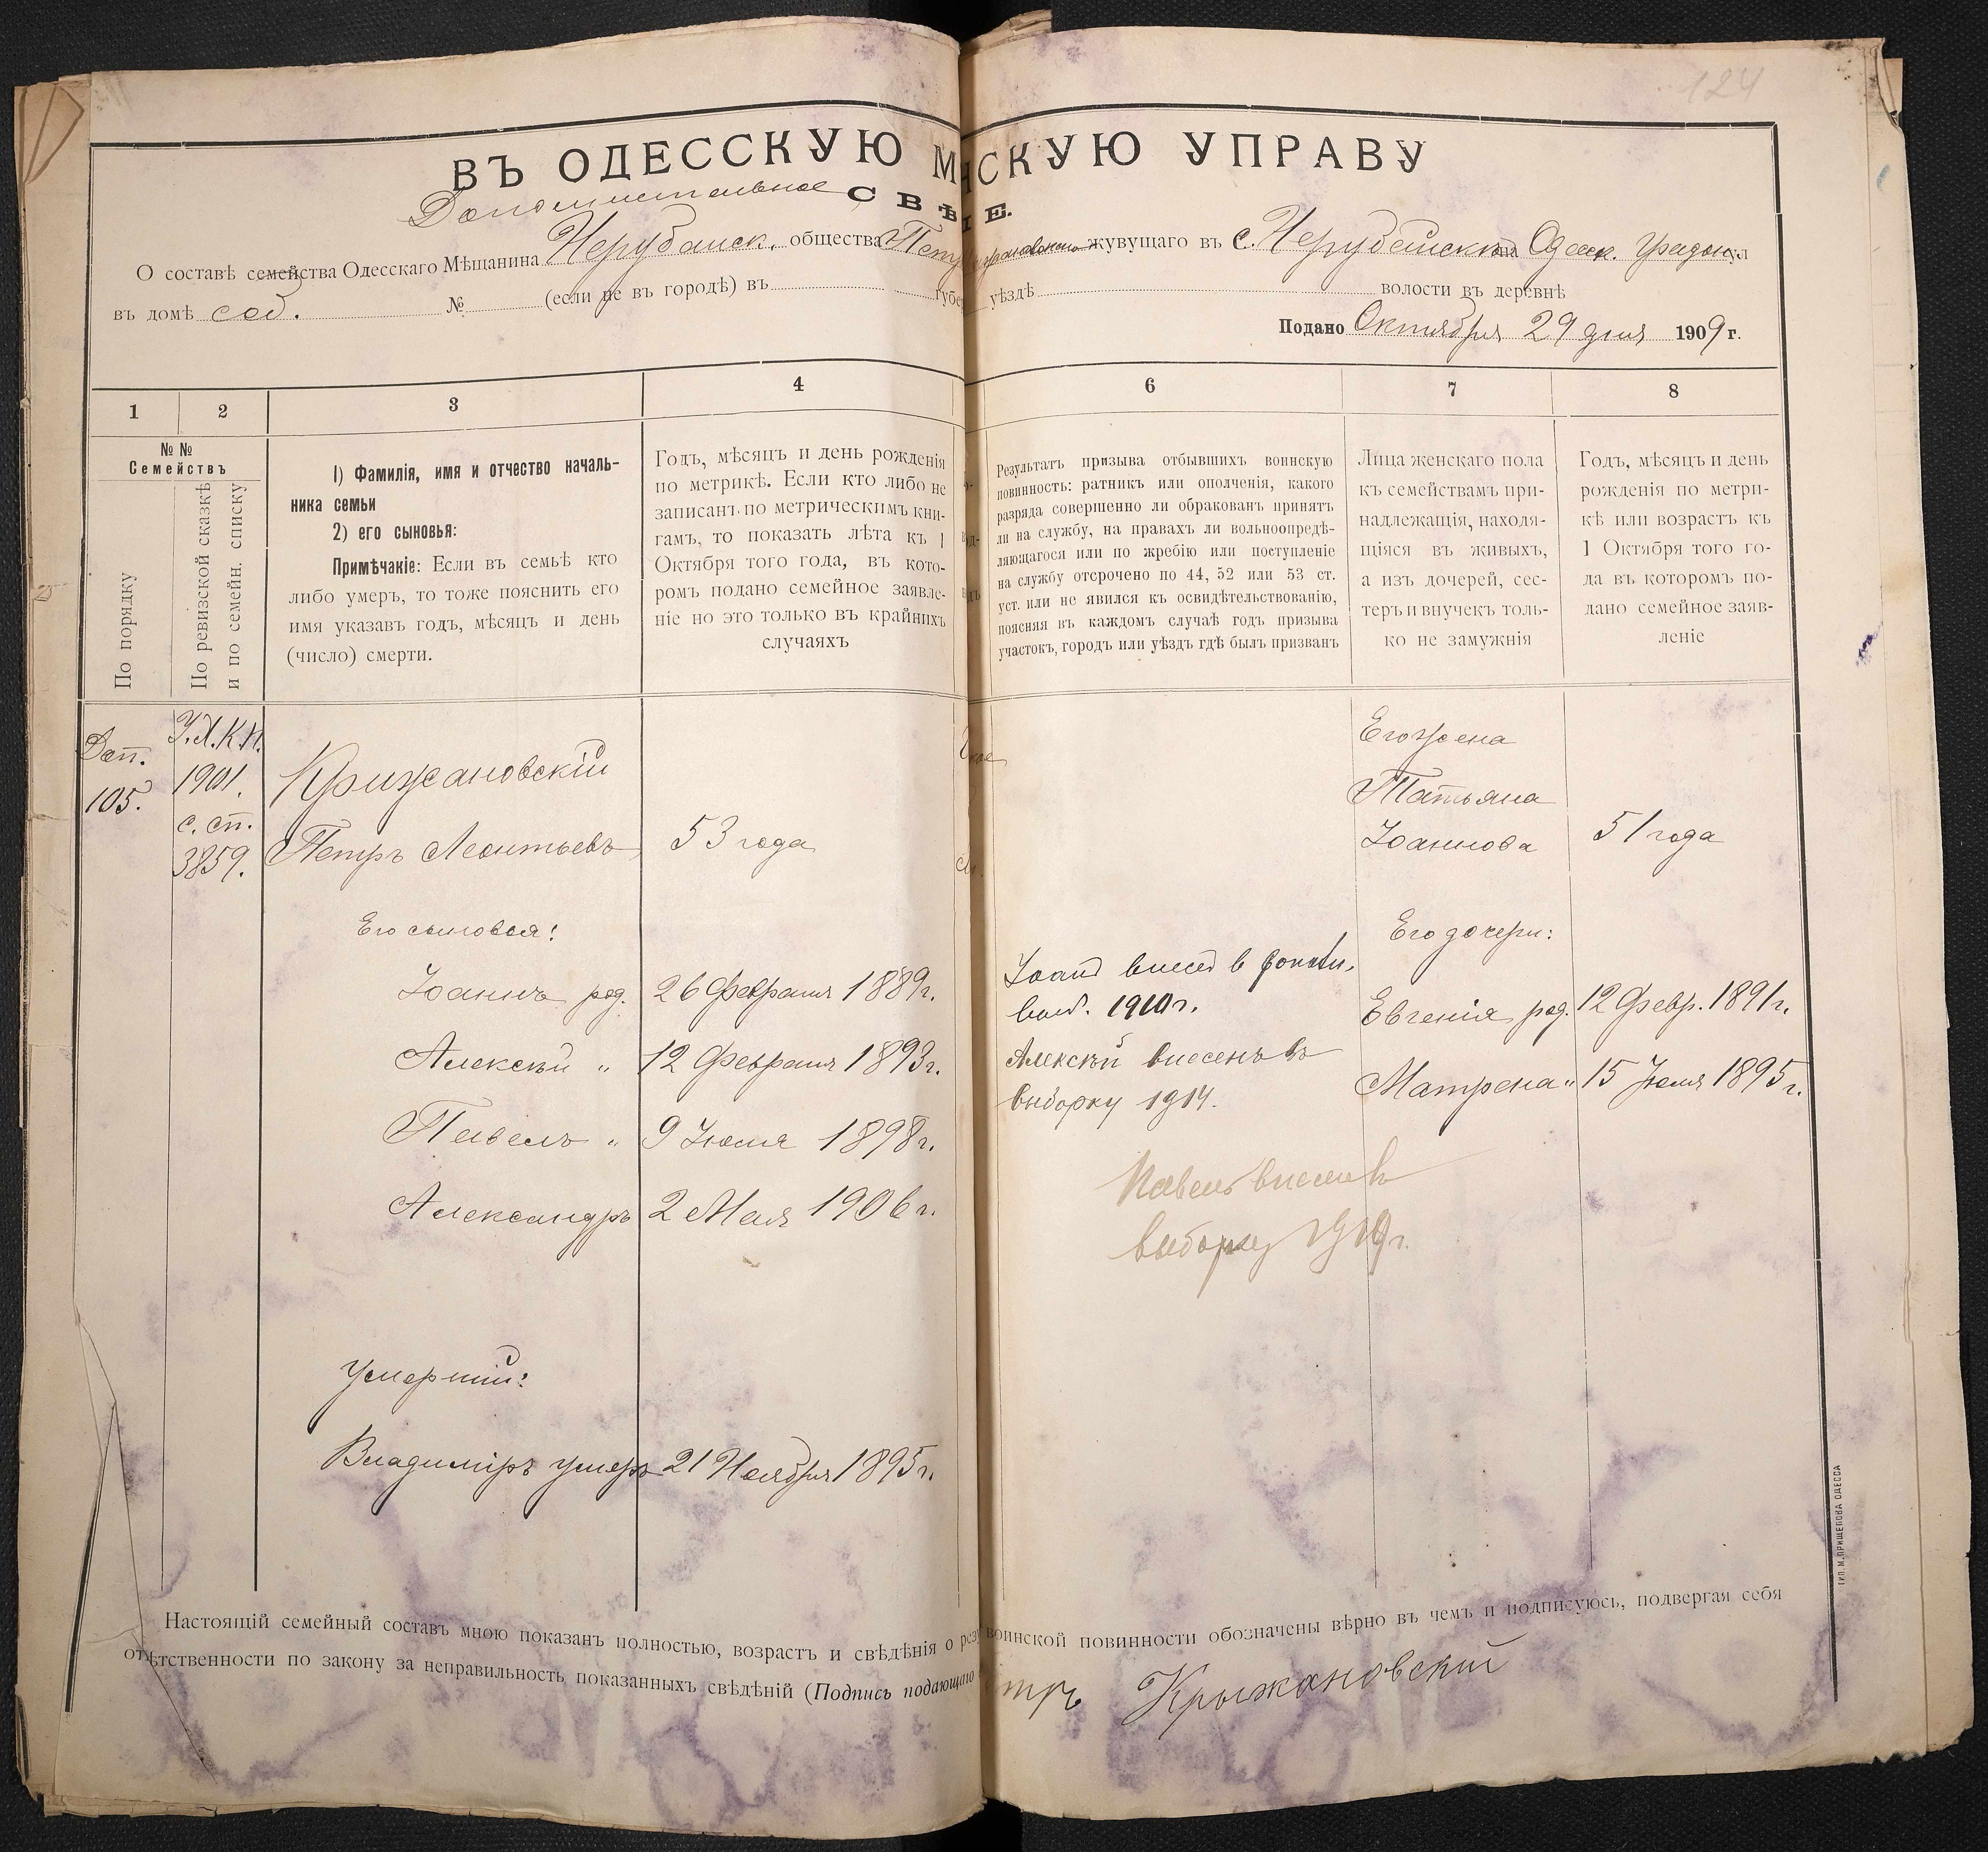 124
ВЪ ОДЕССКУЮ М НСКУЮ УПРАВУ
Дополнительное СВѢ IЕ.
О составѣ семейства Одесскаго Мѣщанина Нерубайск. общества Петр жувущаго въ с. Нерубайскъ на Одесск. Градон.
въ домѣ соб. № (если не въ городѣ) въ губе уѣздѣ волости въ деревнѣ
Подано Октября 29 дня 1909 г.
1 2 3 4 6 7 8
№№
Семействъ
По порядку
По ревизской сказкѣ
и по семейн. списку
1) Фамилія, имя и отчество началь-
ника семьи
2) его сыновья:
Примѣчакіе: Если въ семьѣ кто
либо умеръ, то тоже пояснить его
имя указавъ годъ, мѣсяцъ и день
(число) смерти.
Годъ, мѣсяцъ и день рожденія
по метрикѣ. Если кто либо не
записанъ по метрическимъ кни-
гамъ, то показать лѣта къ 1
Октября того года, въ кото-
ромъ подано семейное заявле-
ніе но это только въ крайнихъ
случаяхъ
Результатъ призыва отбывшихъ воинскую
повинность: ратникъ или ополченія, какого
разряда совершенно ли обракованъ принятъ
ли на службу, на правахъ ли вольноопредѣ-
ляющагося или по жребію или поступленіе
на службу отсрочено по 44, 52 или 53 ст.
уст. или не явился къ освидѣтельствованію,
поясняя въ каждомъ случаѣ годъ призыва
участокъ, городъ или уѣздъ гдѣ былъ призванъ
Лица женскаго пола
къ семействамъ при-
надлежащія, находя-
щіяся въ живыхъ,
а изъ дочерей, сес-
теръ и внучекъ толь-
ко не замужнія
Годъ, мѣсяцъ и день
рожденія по метри-
кѣ или возрастъ къ
1 Октября того го-
да въ которомъ по-
дано семейное заяв-
леніе
Доп.
105.
У.Х.К.П.
1901.
с. сп.
3859.
Крижановскій
Петръ Леонтьевъ 53 года
Его жена
Татьяна
Іоаннова 51 года
Его сыновья:
Іоаннъ род. 26 Февраля 1889 г.
Алексѣй " 12 Февраля 1893 г.
Павелъ " 9 Іюня 1898 г.
Александръ 2 Мая 1906 г.
Іоан внесен в дополн.
выб. 1910 г.
Алексѣй внесенъ въ
выборку 1914.
Павелъ внесен в
выборку 1919 г.
Его дочери:
Евгенія род. 12 Февр. 1891 г.
Матрена " 15 Іюля 1895 г.
Умершій:
Владиміръ умеръ 21 Ноября 1895 г.
Настоящій семейный составъ мною показанъ полностью, возрастъ и свѣдѣнія о рез воинской повинности обозначены вѣрно въ чемъ и подписуюсь, подвергая себя
отвѣтственности по закону за неправильность показанныхъ свѣдѣній (Подпись подающаго етръ Крыжановскій
ТИП. М. ПРИЩЕПОВА ОДЕССА